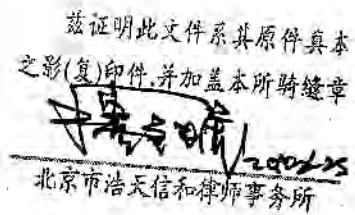 兹证明此文件系其原件真本
之影(复)印件.并加盖本所骑缝章
北京市浩天信和律师事务所